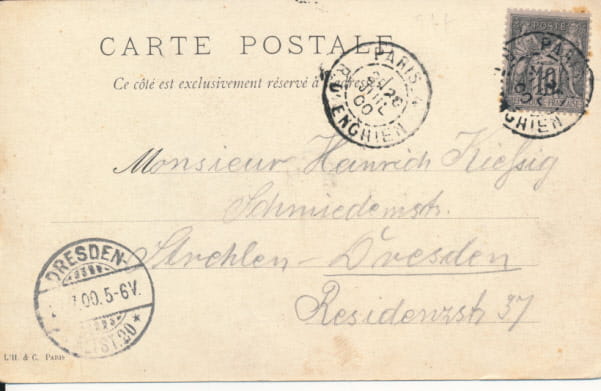 CARTE POSTALE
Ce côté est exclusivement réservé à
PARIS
R. D'ENGHIEN
JUIL
00
POSTE
10
PARIS
ENGHIEN
Monsieur Heinrich Kießig
Schmiedemstr.
Strehlen-Dresden
Residenzstr 37
DRESDEN-
7.00.5-6V.
L'H. & C. PARIS